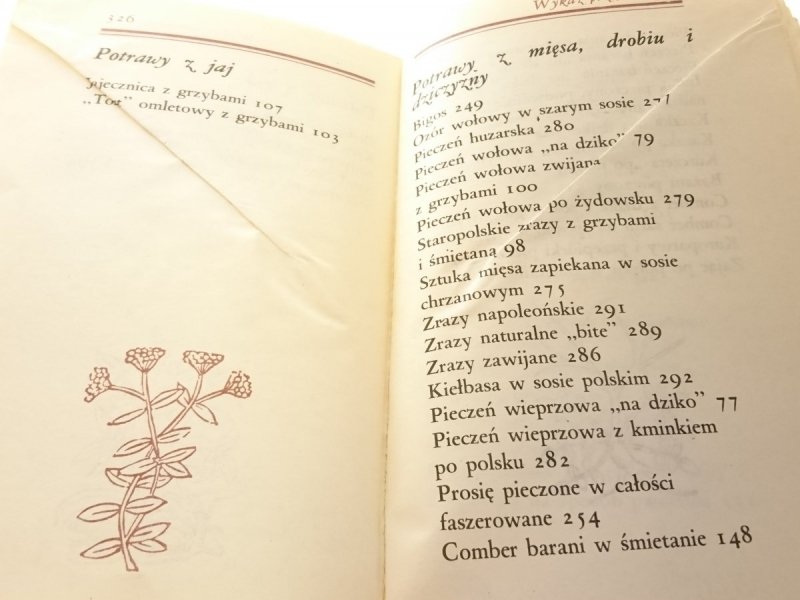 326
Potrawy z jaj
Jajecznica z grzybami 107
„Tost” omletowy z grzybami 103
Potrawy z mięsa, drobiu i
dziczyzny
Bigos 249
Ozór wołowy w szarym sosie 271
Pieczeń huzarska 280
Pieczeń wołowa „na dziko” 79
Pieczeń wołowa zwijana
z grzybami 100
Pieczeń wołowa po żydowsku 279
Staropolskie zrazy z grzybami
i śmietaną 98
Sztuka mięsa zapiekana w sosie
chrzanowym 275
Zrazy napoleońskie 291
Zrazy naturalne „bite” 289
Zrazy zawijane 286
Kiełbasa w sosie polskim 292
Pieczeń wieprzowa „na dziko” 77
Pieczeń wieprzowa z kminkiem
po polsku 282
Prosię pieczone w całości
faszerowane 254
Comber barani w śmietanie 148